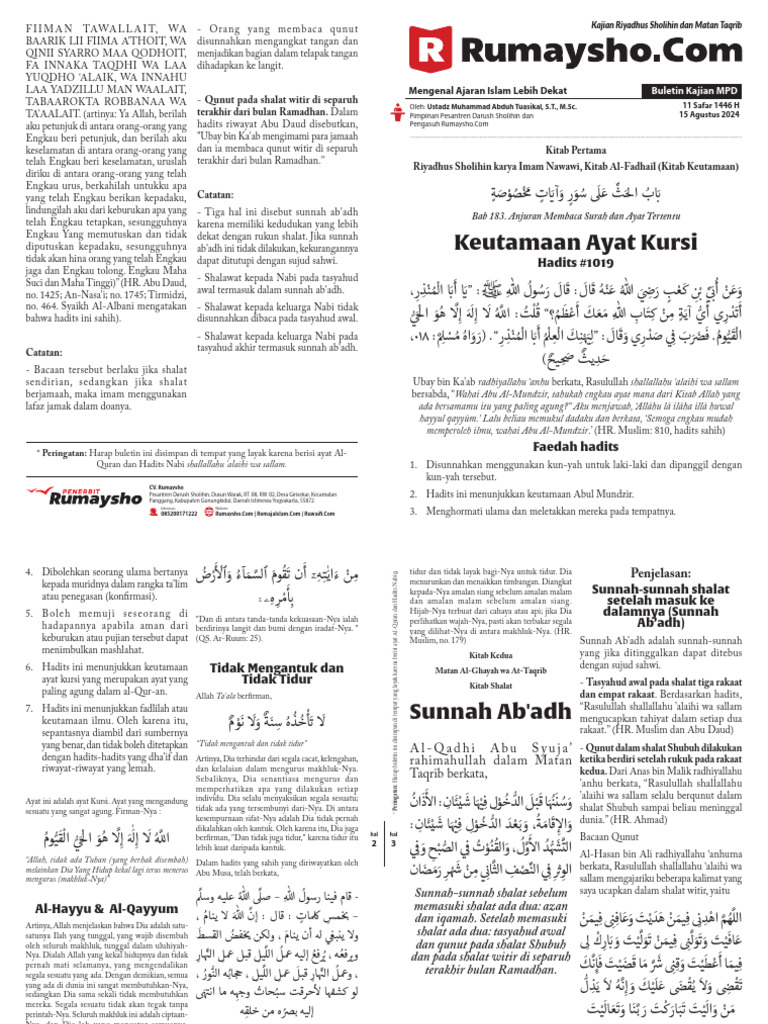 Kajian Riyadhus Sholihin dan Matan Taqrib
R Rumaysho.Com
Mengenal Ajaran Islam Lebih Dekat
Buletin Kajian MPD
Oleh: Ustadz Muhammad Abduh Tuasikal, S.T., M.Sc.
Pimpinan Pesantren Darush Sholihin dan
Pengasuh Rumaysho.Com
11 Safar 1446 H
15 Agustus 2024
Kitab Pertama
Riyadhus Sholihin karya Imam Nawawi, Kitab Al-Fadhail (Kitab Keutamaan)
بَابُ الحَثِّ عَلَى سُوَرٍ وَآيَاتٍ مَخْصُوْصَةٍ
Bab 183. Anjuran Membaca Surah dan Ayat Tersenteu
Keutamaan Ayat Kursi
Hadits #1019
وَعَنْ أُبَيِّ بْنِ كَعْبٍ رَضِيَ اللهُ عَنْهُ قَالَ: قَالَ رَسُولُ اللهِ ﷺ: «يَا أَبَا المُنْذِرِ،
أَتَدْرِي أَيُّ آيَةٍ مِنْ كِتَابِ اللهِ مَعَكَ أَعْظَمُ؟» قُلْتُ: اللهُ لَا إِلَهَ إِلَّا هُوَ الحَيُّ
القَيُّومُ. فَضَرَبَ فِي صَدْرِي وَقَالَ: «لِيَهْنِكَ الْعِلْمُ أَبَا المُنْذِرِ». (رَوَاهُ مُسْلِمٌ: ٠١٨،
حَدِيثٌ صَحِيحٌ)
Ubay bin Ka'ab radhiyallahu 'anhu berkata, Rasulullah shallallahu 'alaihi wa sallam
bersabda, "Wahai Abu Al-Mundzir, tahukah engkau ayat mana dari Kitab Allah yang
ada bersamamu iru yang paling agung?" Aku menjawab, 'Allâhu lâ ilâha illâ huwal
hayyul qayyûm.' Lalu beliau memukul dadaku dan berkata, 'Semoga engkau mudah
memperoleh ilmu, wahai Abu Al-Mundzir.' (HR. Muslim: 810, hadits sahih)
Faedah hadits
1. Disunnahkan menggunakan kun-yah untuk laki-laki dan dipanggil dengan
kun-yah tersebut.
2. Hadits ini menunjukkan keutamaan Abul Mundzir.
3. Menghormati ulama dan meletakkan mereka pada tempatnya.
4. Dibolehkan seorang ulama bertanya
kepada muridnya dalam rangka ta'lim
atau penegasan (konfirmasi).
5. Boleh memuji seseorang di
hadapannya apabila aman dari
keburukan atau pujian tersebut dapat
menimbulkan mashlahat.
6. Hadits ini menunjukkan keutamaan
ayat kursi yang merupakan ayat yang
paling agung dalam al-Qur-an.
7. Hadits ini menunjukkan fadlilah atau
keutamaan ilmu. Oleh karena itu,
sepantasnya diambil dari sumbernya
yang benar, dan tidak boleh ditetapkan
dengan hadits-hadits yang dha'if dan
riwayat-riwayat yang lemah.
Ayat ini adalah ayat Kursi. Ayat yang mengandung
sesuatu yang sangat agung. Firman-Nya :
اللَّهُ لَا إِلَهَ إِلَّا هُوَ الْحَيُّ الْقَيُّومُ
"Allah, tidak ada Tuhan (yang berhak disembah)
melainkan Dia Yang Hidup kekal lagi terus menerus
mengurus (makhluk-Nya)"
Al-Hayyu & Al-Qayyum
Artinya, Allah menjelaskan bahwa Dia adalah satu-
satunya Ilah yang tunggal, yang wajib disembah
oleh seluruh makhluk, tunggal dalam uluhiyah-
Nya. Dialah Allah yang kekal hidupnya dan tidak
pernah mati selamanya, yang mengendalikan
segala sesuatu yang ada. Dengan demikian, semua
yang ada di dunia ini sangat membutuhkan-Nya,
sedangkan Dia sama sekali tidak membutuhkan
mereka. Segala sesuatu tidak akan tegak tanpa
perintah-Nya. Seluruh makhluk ini adalah ciptaan-
مِنْ ءَايَٰتِهِۦٓ أَن تَقُومَ ٱلسَّمَآءُ وَٱلْأَرْضُ
بِأَمْرِهِۦ
"Dan di antara tanda-tanda kekuasaan-Nya ialah
berdirinya langit dan bumi dengan iradat-Nya."
(QS. Ar-Ruum: 25).
Tidak Mengantuk dan
Tidak Tidur
Allah Ta'ala berfirman,
لَا تَأْخُذُهُ سِنَةٌ وَلَا نَوْمٌ
"Tidak mengantuk dan tidak tidur"
Artinya, Dia terhindar dari segala cacat, kelengahan,
dan kelalaian dalam mengurus makhluk-Nya.
Sebaliknya, Dia senantiasa mengurus dan
memperhatikan apa yang dilakukan setiap
individu. Dia selalu menyaksikan segala sesuatu;
tidak ada yang tersembunyi dari-Nya. Di antara
kesempurnaan sifat-Nya adalah Dia tidak pernah
dikalahkan oleh kantuk. Oleh karena itu, Dia juga
berfirman, "Dan tidak juga tidur," karena tidur itu
lebih kuat daripada kantuk.
Dalam hadits yang sahih yang diriwayatkan oleh
Abu Musa, telah berkata,
- قام فينا رسول الله – صلَّى الله عليه وسلَّم
– بخمسِ كلماتٍ: قال : إنَّ اللهَ لا ينامُ ،
ولا ينبغي له أن ينامَ ، ولكن يخفضُ القسطَ
ويرفعُه ، يُرفعُ إليه عملُ اللَّيلِ قبل عملِ النَّهارِ
، وعملُ النَّهارِ قبل عملِ اللَّيلِ ، حجابُه النُّورُ ،
لو كشفها لأحرقت سبحاتُ وجهِه ما انتهى
إليه بصرُه من خلقِه
hal
2
hal
3
* Peringatan: Harap buletin ini disimpan di tempat yang layak karena berisi ayat Al-Quran dan Hadits Nabi
tidur dan tidak layak bagi-Nya untuk tidur. Dia
menurunkan dan menaikkan timbangan. Diangkat
kepada-Nya amalan siang sebelum amalan malam
dan amalan malam sebelum amalan siang.
Hijab-Nya terbuat dari cahaya atau api; jika Dia
perlihatkan wajah-Nya, pasti akan terbakar segala
yang dilihat-Nya di antara makhluk-Nya. (HR.
Muslim, no. 179)
Kitab Kedua
Matan Al-Ghayah wa At-Taqrib
Kitab Shalat
Sunnah Ab'adh
Al-Qadhi Abu Syuja'
rahimahullah dalam Matan
Taqrib berkata,
وَسُنَنُهَا قَبْلَ الدُّخُوْلِ فِيْهَا شَيْئَانِ: الأَذَانُ
وَالإِقَامَةُ، وَبَعْدَ الدُّخُوْلِ فِيْهَا شَيْئَانِ:
التَّشَهُّدُ الأَوَّلُ، وَالقُنُوْتُ فِي الصُّبْحِ وَفِي
الوِتْرِ فِي النِّصْفِ الثَّانِي مِنْ شَهْرِ رَمَضَانَ
Sunnah-sunnah shalat sebelum
memasuki shalat ada dua: azan
dan iqamah. Setelah memasuki
shalat ada dua: tasyahud awal
dan qunut pada shalat Shubuh
dan pada shalat witir di separuh
terakhir bulan Ramadhan.
Penjelasan:
Sunnah-sunnah shalat
setelah masuk ke
dalamnya (Sunnah
Ab'adh)
Sunnah Ab'adh adalah sunnah-sunnah
yang jika ditinggalkan dapat ditebus
dengan sujud sahwi.
- Tasyahud awal pada shalat tiga rakaat
dan empat rakaat. Berdasarkan hadits,
"Rasulullah shallallahu 'alaihi wa sallam
mengucapkan tahiyat dalam setiap dua
rakaat." (HR. Muslim dan Abu Daud)
- Qunut dalam shalat Shubuh dilakukan
ketika berdiri setelah rukuk pada rakaat
kedua. Dari Anas bin Malik radhiyallahu
'anhu berkata, "Rasulullah shallallahu
'alaihi wa sallam selalu berqunut dalam
shalat Shubuh sampai beliau meninggal
dunia." (HR. Ahmad)
Bacaan Qunut
Al-Hasan bin Ali radhiyallahu 'anhuma
berkata, Rasulullah shallallahu 'alaihi wa
sallam mengajariku beberapa kalimat yang
saya ucapkan dalam shalat witir, yaitu
اللَّهُمَّ اهْدِنِي فِيمَنْ هَدَيْتَ وَعَافِنِي فِيمَنْ
عَافَيْتَ وَتَوَلَّنِي فِيمَنْ تَوَلَّيْتَ وَبَارِكْ لِي
فِيمَا أَعْطَيْتَ وَقِنِي شَرَّ مَا قَضَيْتَ فَإِنَّكَ
تَقْضِي وَلاَ يُقْضَى عَلَيْكَ وَإِنَّهُ لاَ يَذِلُّ
مَنْ وَالَيْتَ تَبَارَكْتَ رَبَّنَا وَتَعَالَيْتَ
FIIMAN TAWALLAIT, WA
BAARIK LII FIIMA A'THOIT, WA
QINII SYARRO MAA QODHOIT,
FA INNAKA TAQDHI WA LAA
YUQDHO 'ALAIK, WA INNAHU
LAA YADZILLU MAN WAALAIT,
TABAAROKTA ROBBANAA WA
TA'AALAIT. (artinya: Ya Allah, berilah
aku petunjuk di antara orang-orang yang
Engkau beri petunjuk, dan berilah aku
keselamatan di antara orang-orang yang
telah Engkau beri keselamatan, uruslah
diriku di antara orang-orang yang telah
Engkau urus, berkahilah untukku apa
yang telah Engkau berikan kepadaku,
lindungilah aku dari keburukan apa yang
telah Engkau tetapkan, sesungguhnya
Engkau Yang memutuskan dan tidak
diputuskan kepadaku, sesungguhnya
tidak akan hina orang yang telah Engkau
jaga dan Engkau tolong. Engkau Maha
Suci dan Maha Tinggi)" (HR. Abu Daud,
no. 1425; An-Nasa'i; no. 1745; Tirmidzi,
no. 464. Syaikh Al-Albani mengatakan
bahwa hadits ini sahih).
Catatan:
- Bacaan tersebut berlaku jika shalat
sendirian, sedangkan jika shalat
berjamaah, maka imam menggunakan
lafaz jamak dalam doanya.
- Orang yang membaca qunut
disunnahkan mengangkat tangan dan
menjadikan bagian dalam telapak tangan
dihadapkan ke langit.
- Qunut pada shalat witir di separuh
terakhir dari bulan Ramadhan. Dalam
hadits riwayat Abu Daud disebutkan,
"Ubay bin Ka'ab mengimami para jamaah
dan ia membaca qunut witir di separuh
terakhir dari bulan Ramadhan."
Catatan:
- Tiga hal ini disebut sunnah ab'adh
karena memiliki kedudukan yang lebih
dekat dengan rukun shalat. Jika sunnah
ab'adh ini tidak dilakukan, kekurangannya
dapat ditutupi dengan sujud sahwi.
- Shalawat kepada Nabi pada tasyahud
awal termasuk dalam sunnah ab'adh.
- Shalawat kepada keluarga Nabi tidak
disunnahkan dibaca pada tasyahud awal.
- Shalawat kepada keluarga Nabi pada
tasyahud akhir termasuk sunnah ab'adh.
* Peringatan: Harap buletin ini disimpan di tempat yang layak karena berisi ayat Al-
Quran dan Hadits Nabi shallallahu 'alaihi wa sallam.
PENERBIT
Rumaysho
CV. Rumaysho
Pesantren Darush Sholihin, Dusun Warak, RT 08, RW 02, Desa Girisekar, Kecamatan
Panggang, Kabupaten Gunungkidul, Daerah Istimewa Yogyakarta, 55872
085200171222
Rumaysho.Com | Remajalslam.Com | Ruwaifi.Com